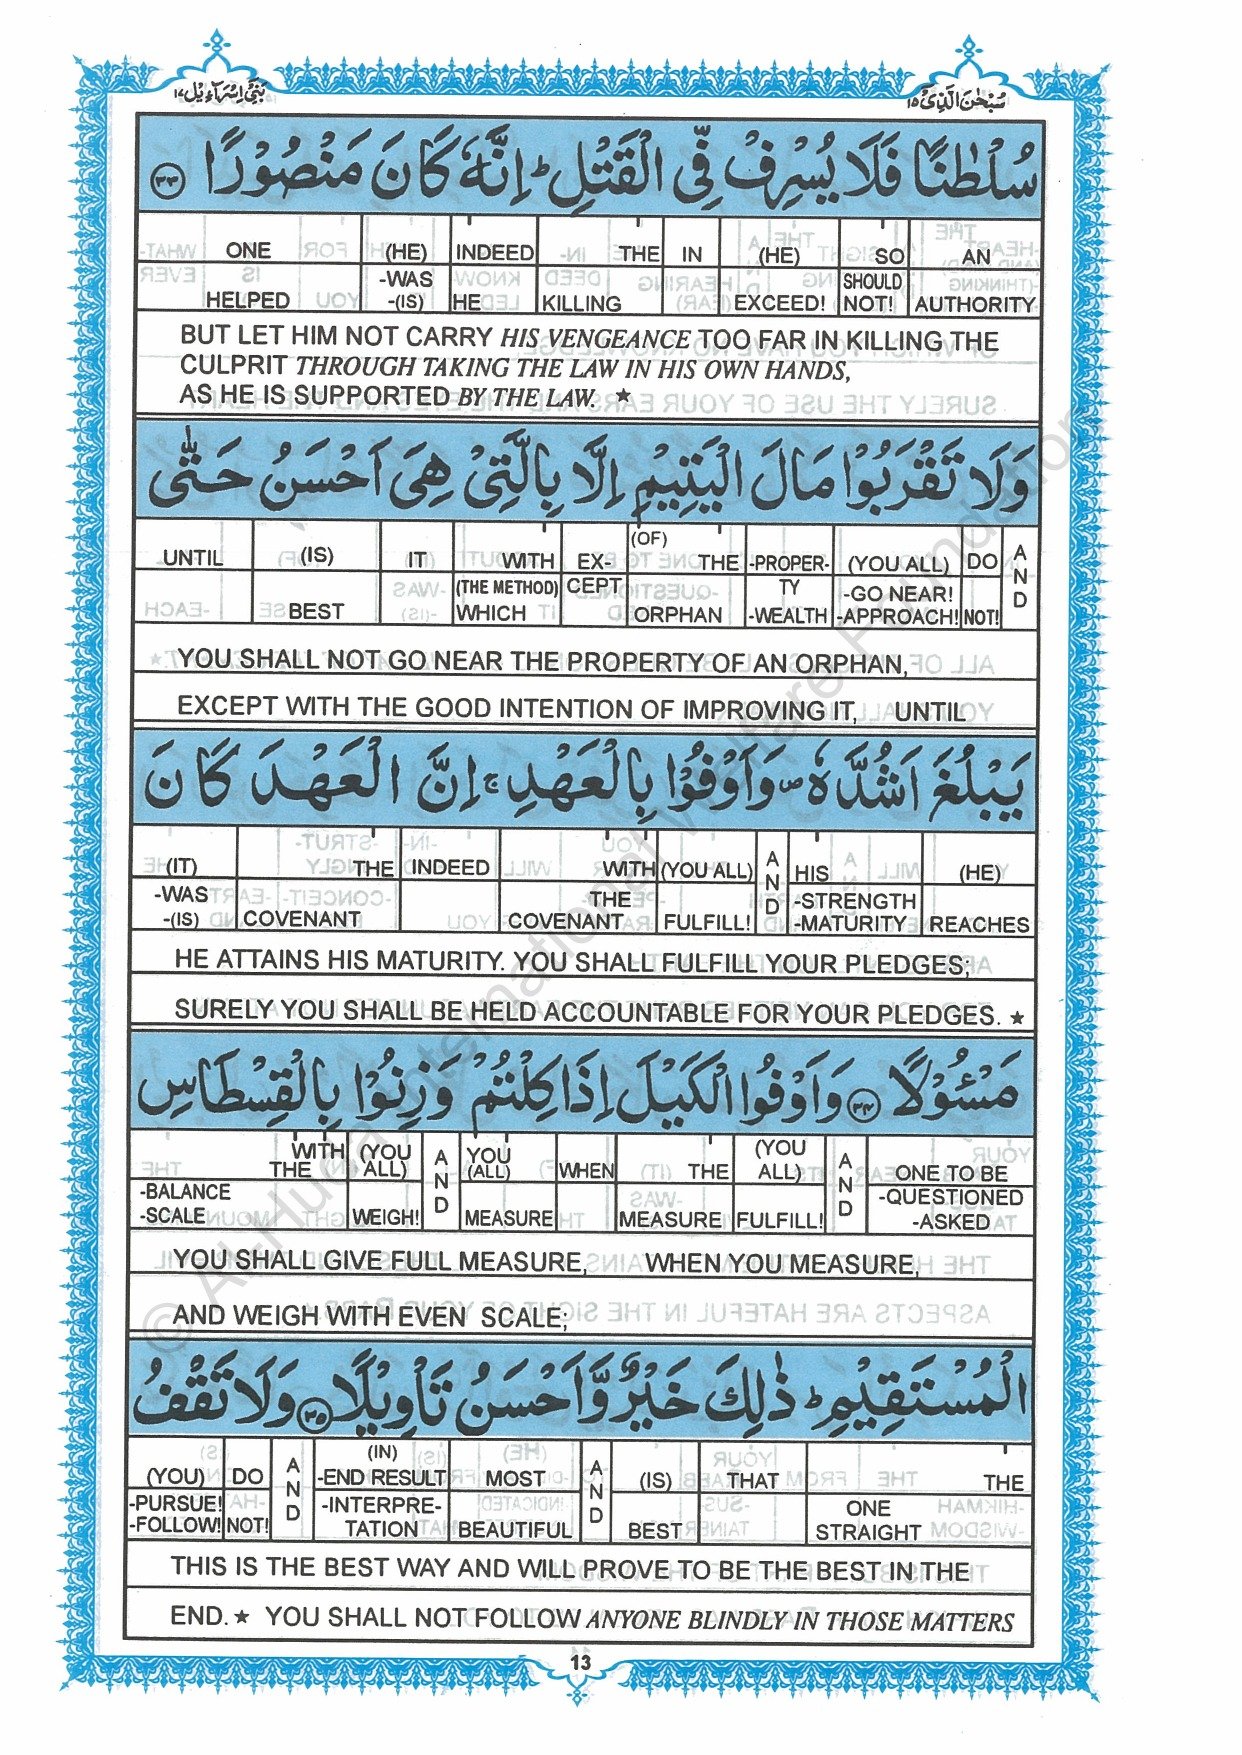 بَنِیْٓ اِسْرَآءِیْل ١٧
سُبْحٰنَ الَّذِیْٓ ١٥
سُلْطٰنًا فَلَا یُسْرِفْ فِّی الْقَتْلِ ؕ اِنَّهٗ كَانَ مَنْصُوْرًا ﴿٣٣﴾
ONE (HE) INDEED THE IN (HE) SO AN
HELPED -WAS -(IS) HE KILLING EXCEED! SHOULD NOT! AUTHORITY
BUT LET HIM NOT CARRY HIS VENGEANCE TOO FAR IN KILLING THE
CULPRIT THROUGH TAKING THE LAW IN HIS OWN HANDS,
AS HE IS SUPPORTED BY THE LAW. ★
وَلَا تَقْرَبُوْا مَالَ الْیَتِیْمِ اِلَّا بِالَّتِیْ هِیَ اَحْسَنُ حَتّٰی
UNTIL (IS) IT WITH EX- (OF) THE -PROPER- (YOU ALL) DO AND
BEST (THE METHOD) WHICH CEPT ORPHAN TY -WEALTH -GO NEAR! -APPROACH! NOT!
YOU SHALL NOT GO NEAR THE PROPERTY OF AN ORPHAN,
EXCEPT WITH THE GOOD INTENTION OF IMPROVING IT, UNTIL
یَبْلُغَ اَشُدَّهٗ ۪ وَاَوْفُوْا بِالْعَهْدِ ۚ اِنَّ الْعَهْدَ كَانَ
(IT) THE INDEED WITH (YOU ALL) AND HIS (HE)
-WAS -(IS) COVENANT THE COVENANT FULFILL! -STRENGTH -MATURITY REACHES
HE ATTAINS HIS MATURITY. YOU SHALL FULFILL YOUR PLEDGES;
SURELY YOU SHALL BE HELD ACCOUNTABLE FOR YOUR PLEDGES. ★
مَسْـُٔوْلًا ﴿٣٤﴾ وَاَوْفُوا الْكَیْلَ اِذَا كِلْتُمْ وَزِنُوْا بِالْقِسْطَاسِ
WITH THE (YOU ALL) AND YOU (ALL) WHEN THE (YOU ALL) AND ONE TO BE
-BALANCE -SCALE WEIGH! MEASURE MEASURE FULFILL! -QUESTIONED -ASKED
YOU SHALL GIVE FULL MEASURE, WHEN YOU MEASURE,
AND WEIGH WITH EVEN SCALE;
الْمُسْتَقِیْمِ ؕ ذٰلِكَ خَیْرٌ وَّاَحْسَنُ تَاْوِیْلًا ﴿٣٥﴾ وَلَا تَقْفُ
(YOU) DO AND (IN) -END RESULT MOST AND (IS) THAT THE
-PURSUE! -FOLLOW! NOT! -INTERPRE- TATION BEAUTIFUL BEST ONE STRAIGHT
THIS IS THE BEST WAY AND WILL PROVE TO BE THE BEST IN THE
END. ★ YOU SHALL NOT FOLLOW ANYONE BLINDLY IN THOSE MATTERS
13
© Al-Huda International Welfare Foundation